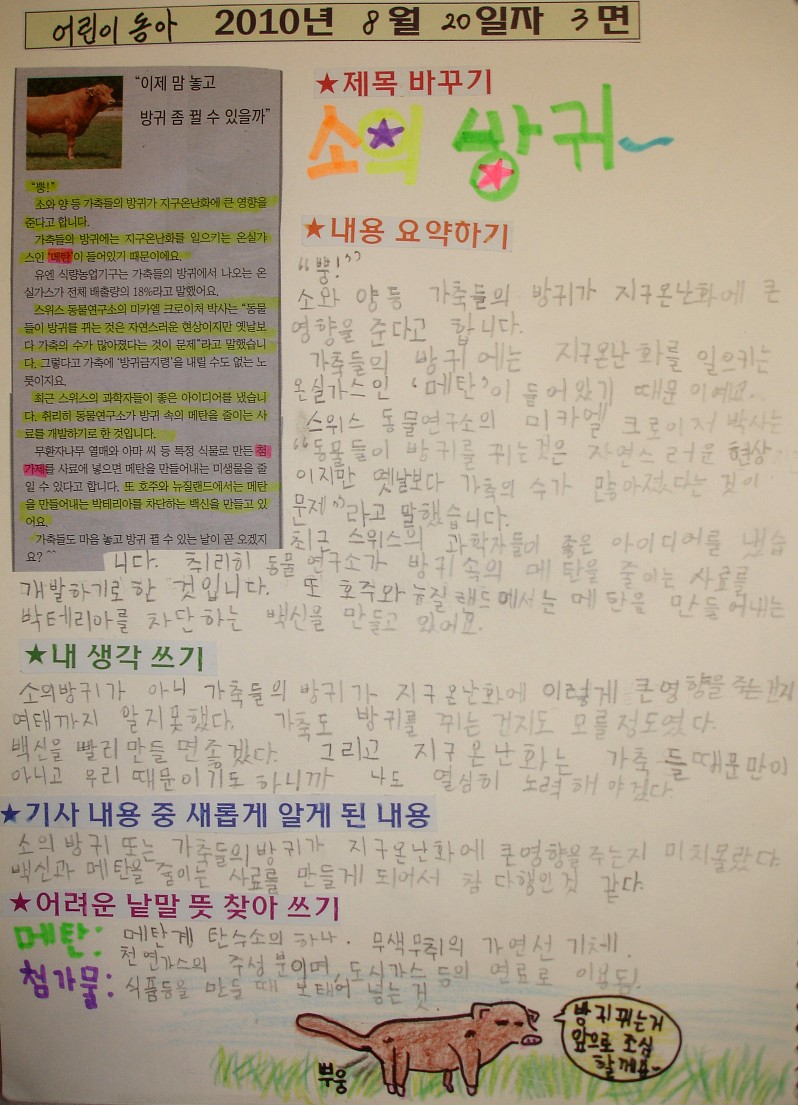 어린이 동아 2010년 8월 20일자 3면
"이제 맘 놓고
방귀 좀 뀔 수 있을까"
"뿡!"
소와 양 등 가축들의 방귀가 지구온난화에 큰 영향을
준다고 합니다.
가축들의 방귀에는 지구온난화를 일으키는 온실가
스인 '메탄'이 들어있기 때문이에요.
유엔 식량농업기구는 가축들의 방귀에서 나오는 온
실가스가 전체 배출량의 18%라고 말했어요.
스위스 동물연구소의 미카엘 크로이처 박사는 "동물
들이 방귀를 뀌는 것은 자연스러운 현상이지만 옛날보
다 가축의 수가 많아졌다는 것이 문제"라고 말했습니
다. 그렇다고 가축에 '방귀금지령'을 내릴 수도 없는 노
릇이지요.
최근 스위스의 과학자들이 좋은 아이디어를 냈습니
다. 취리히 동물연구소가 방귀 속의 메탄을 줄이는 사
료를 개발하기로 한 것입니다.
무환자나무 열매와 아마 씨 등 특정 식물로 만든 첨
가제를 사료에 넣으면 메탄을 만들어내는 미생물을 줄
일 수 있다고 합니다. 또 호주와 뉴질랜드에서는 메탄
을 만들어내는 박테리아를 차단하는 백신을 만들고 있
어요.
가축들도 마음 놓고 방귀 뀔 수 있는 날이 곧 오겠지
요? ^^
★제목 바꾸기
소의 방귀~
★내용 요약하기
"뿡!"
소와 양 등 가축들의 방귀가 지구온난화에 큰
영향을 준다고 합니다.
가축들의 방귀에는 지구온난화를 일으키는
온실가스인 '메탄'이 들어있기 때문이예요.
스위스 동물연구소의 미카엘 크로이저 박사는
"동물들이 방귀를 뀌는것은 자연스러운 현상
이지만 옛날보다 가축의 수가 많아졌다는 것이
문제"라고 말했습니다.
최근 스위스의 과학자들이 좋은 아이디어를 냈습
니다. 취리히 동물 연구소가 방귀 속의 메탄을 줄이는 사료를
개발하기로 한 것입니다. 또 호주와 뉴질랜드에서는 메탄을 만들어내는
박테리아를 차단하는 백신을 만들고 있어요.
★내 생각 쓰기
소의방귀가 아닌 가축들의 방귀가 지구온난화에 이렇게 큰영향을 주는건지
여태까지 알지못했다. 가축도 방귀를 뀌는건지도 모를정도였다.
백신을 빨리만들면좋겠다. 그리고 지구온난화는 가축들때문만이
아니고 우리때문이기도 하니까 나도 열심히 노력해야겠다.
★기사 내용 중 새롭게 알게 된 내용
소의방귀 또는 가축들의방귀가 지구온난화에 큰영향을주는지 미치몰랐다.
백신과 메탄을 줄이는 사료를 만들게 되어서 참 다행인것 같다.
★어려운 낱말 뜻 찾아 쓰기
메탄: 메탄계 탄수소의 하나. 무색무취의 가연선 기체.
천연가스의 주성분이며, 도시가스 등의 연료로 이용됨.
첨가물: 식품등을 만들 때 보태어 넣는 것.
방귀뀌는거
앞으로 조심
할께요~
뿌웅